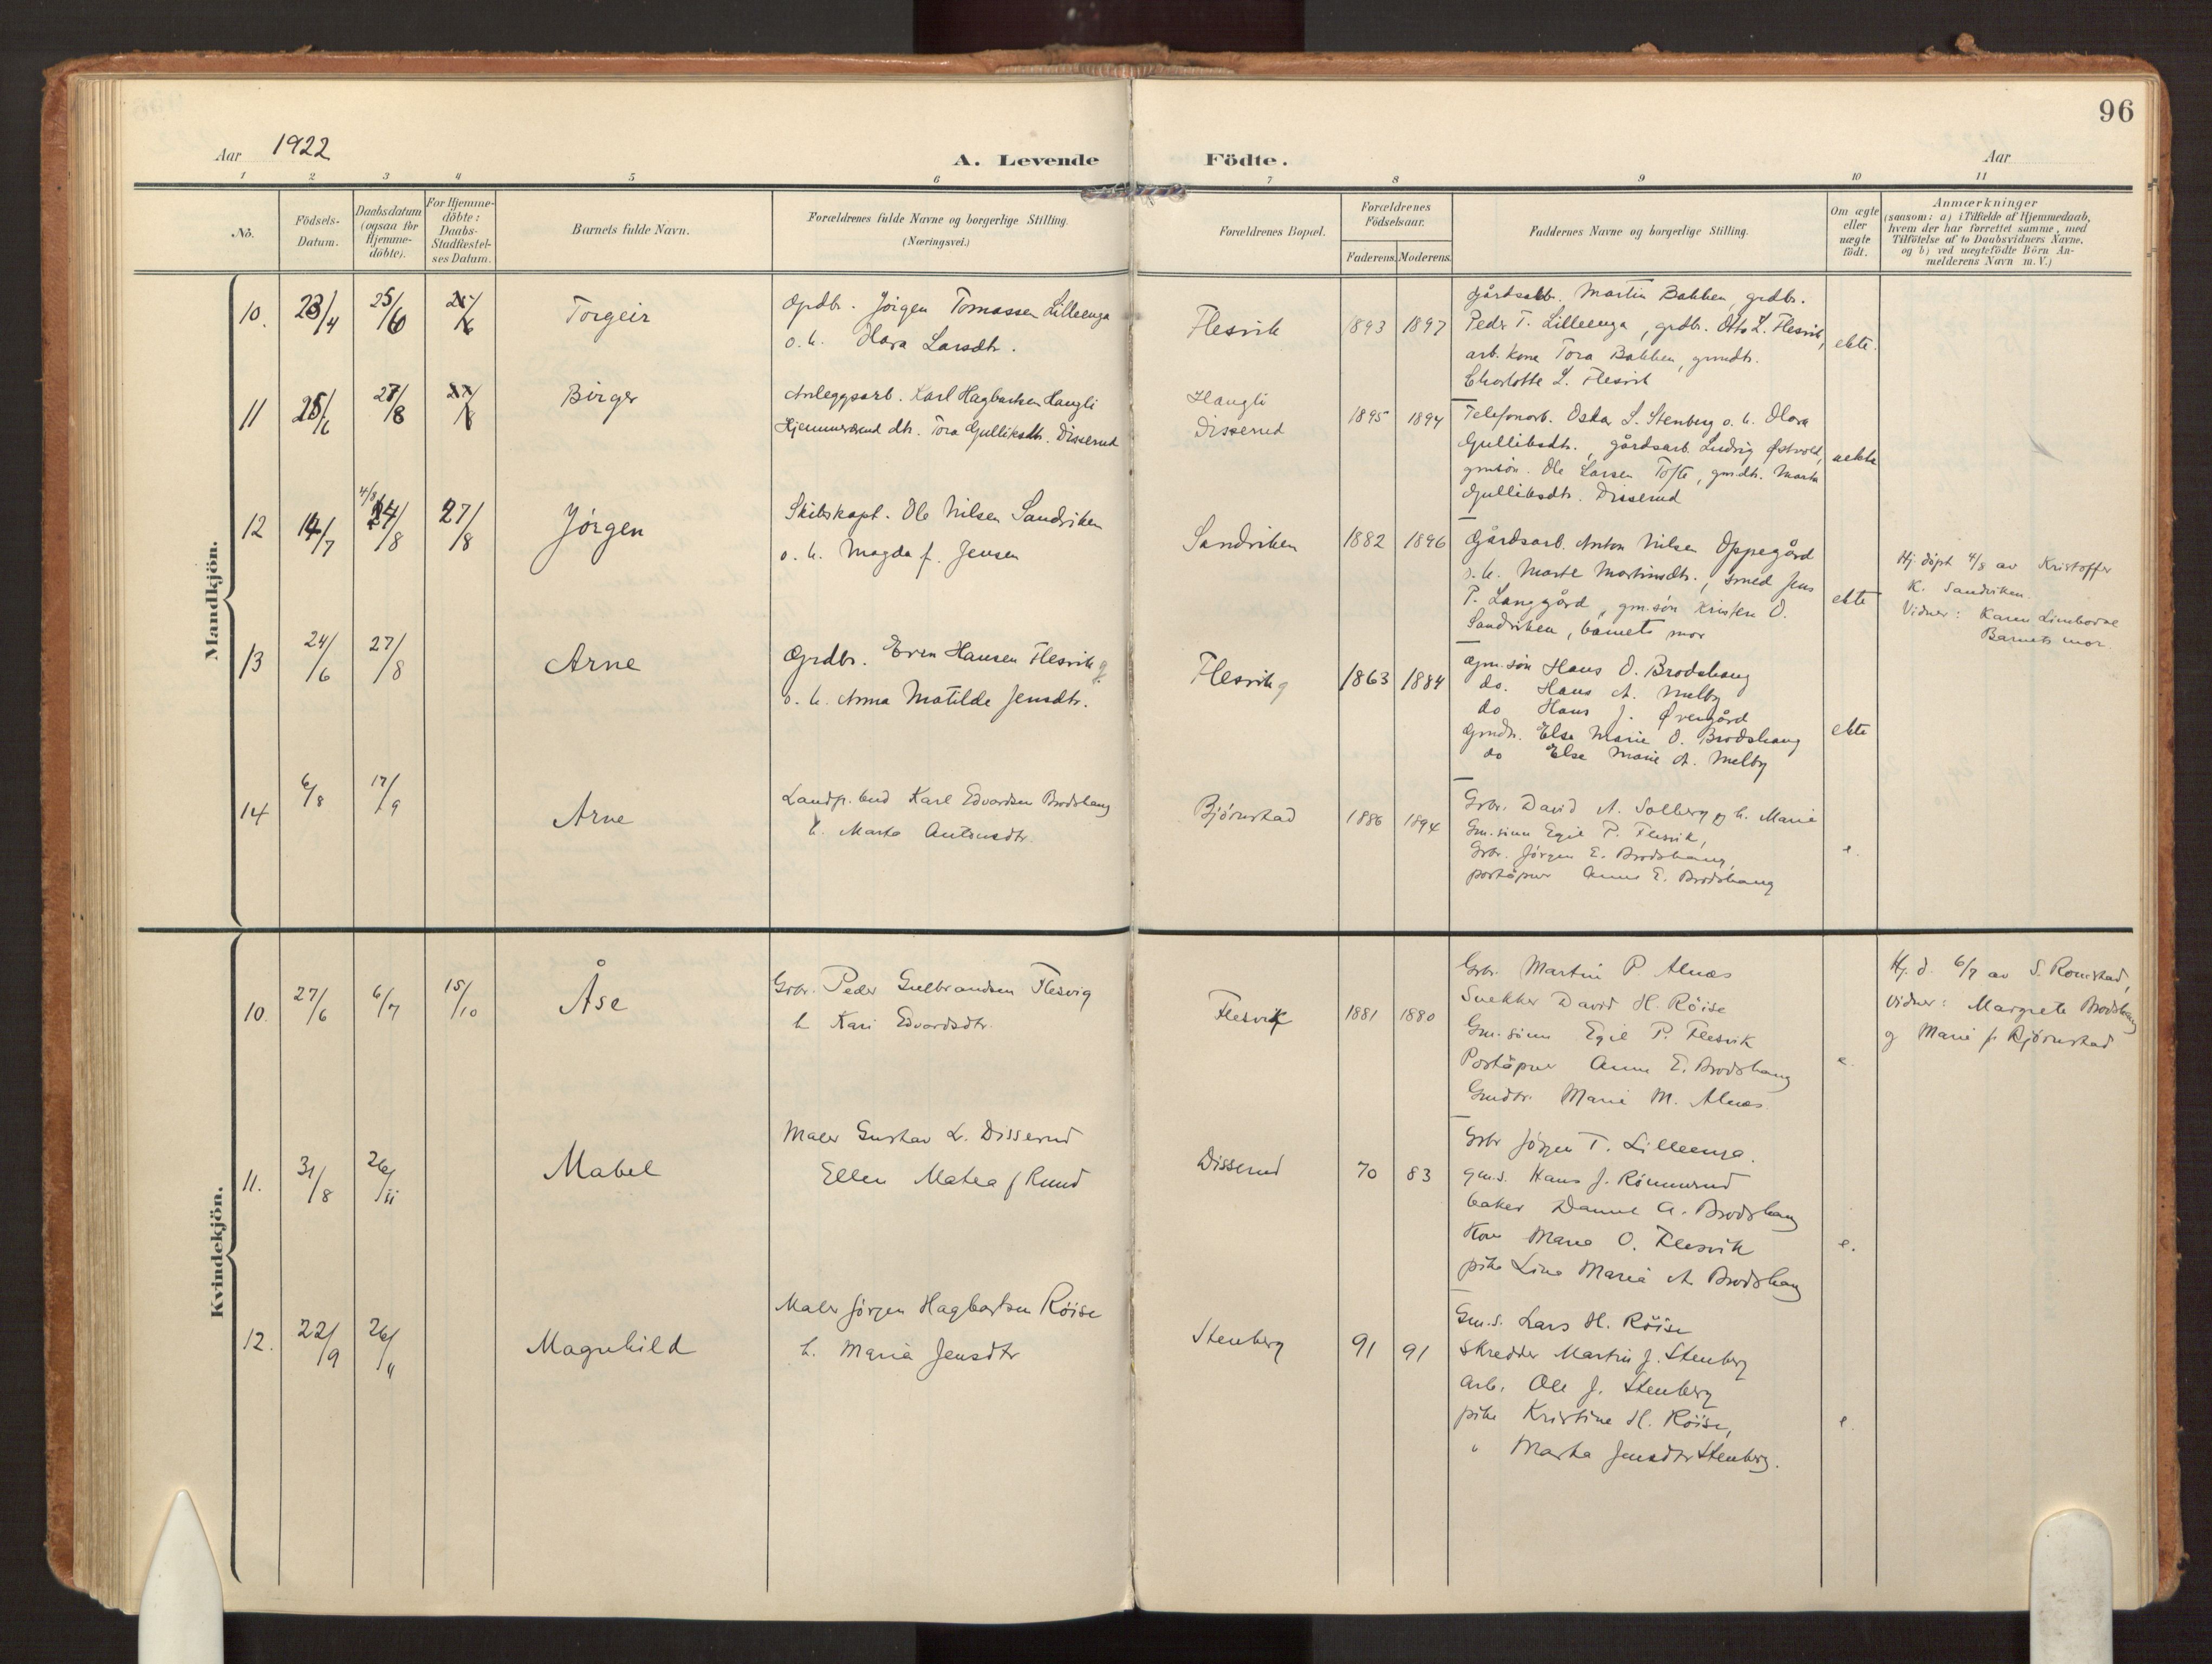 96
Aar 1922
A. Levende Födte.
Aar
1 2 3 4 5 6 7 8 9 10 11
No.
Födsels-
Datum.
Daabsdatum
(ogsaa for
Hjemme-
döbte).
For Hjemme-
döbte:
Daabs-
Stadfæstel-
ses Datum.
Barnets fulde Navn.
Forældrenes fulde Navne og borgerlige Stilling.
(Næringsvei.)
Forældrenes Bopæl.
Forældrenes
Födselsaar.
Faderens. Moderens.
Faddernes Navne og borgerlige Stilling.
Om ægte
eller
uægte
födt.
Anmærkninger
(saasom: a) i Tilfælde af Hjemmedaab,
hvem der har forrettet samme, med
Tilföielse af to Daabsvidners Navne,
og b) ved uægtefödte Börn An-
melderens Navn m. V.)
Mandkjön.
10. 23/4 25/6 Torgeir
Grdbr. Jörgen Tomassen Lilleenga
o. h. Larsdtr.
Flesvik
1893 1897
Gårdsarb. Martin Bakken, grdbr.
Peder T. Lilleenga, grdbr. Otto L. Flesvik,
arb. kone Tora Bakken, grmdtr.
Charlotte L. Flesvik
ekte.
11 25/6 27/8 Birger
Anleggsarb. Karl Hagbartsen Haugli
Hjemmeværend dtr. Tora Gulliksdtr. Disserud
Haugli
Disserud
1895 1894
Telefonarb. Oskar L. Stenberg o. h. Olava
Gulliksdtr., gårdsarb. Ludvig Østvold,
gmsön. Ole Larsen Tofte, gmdtr. Marta
Gulliksdtr. Disserud
uekte
12 14/7 4/8 24/8 27/8 Jörgen
Skibskapt. Ole Nilsen Sandviken
o. h. Magda f. Jensen
Sandviken
1882 1896
Gårdsarb. Anton Nilsen Oppegård
o. h. Marte Martinsdtr., smed Jens
P. Langgård, gm.sön Kristen O.
Sandviken, barnets mor
ekte
Hj. döpt 4/8 av Kristoffer
K. Sandviken.
Vidner: Karen
Barnets mor.
13 24/6 27/8 Arne
Grdbr. Even Hansen Flesvik
o. h. Anna Matilde Jensdtr.
Flesvik
1863 1884
Gm.sön Hans O. Brodshaug
do. Hans A. Melby
do Hans J. Övergård
Gmdtr. Else Marie O. Brodshaug
do Else Marie A. Melby
ekte
14 6/8 17/9 Arne
Landp. bud Karl Edvardsen Brodshaug
h. Marta Antonsdtr.
Bjørnstad
1886 1894
Grbr. David A. Solberg og h. Marie
Gm.sönn Egil P. Flesvik,
Grbr. Jørgen E. Brodshaug,
poståpner Anna E. Brodshaug
e.
Kvindekjön.
10. 27/6 6/7 15/10 Åse
Grbr. Peder Gulbrandsen Flesvig
h Kari Edvardsdtr.
Flesvik
1881 1880
Grbr. Martin P. Alnæs
Snekker David H. Røise
Gm.sönn Egil P. Flesvik
Poståpner Anna E. Brodshaug
Gmdtr. Marie M. Alnæs.
e.
Hj. d. 6/7 av S. Romstad,
Vidner: Margrete Brodshaug
og Marie f. Bjørnstad
11. 31/8 26/11 Mabel
Maler Gustav L. Disserud
Ellen Matea f Ruud
Disserud
70 83
Grbr Jørgen T. Lilleenga.
gm.s. Hans J. Rönnerud
baker Daniel A. Brodshaug
Kone Marie O. Flesvik
pike Lina Maria A. Brodshaug
e.
12. 22/9 26/11 Magnhild
Maler Jørgen Hagbartsen Røise
h. Maria Jensdtr
Stenberg
91 91
Gm.s. Lars H. Røise
Skredder Martin J. Stenberg
Arb. Ole J. Stenberg
pike Kristine H. Røise,
" Marta Jensdtr Stenberg.
e.